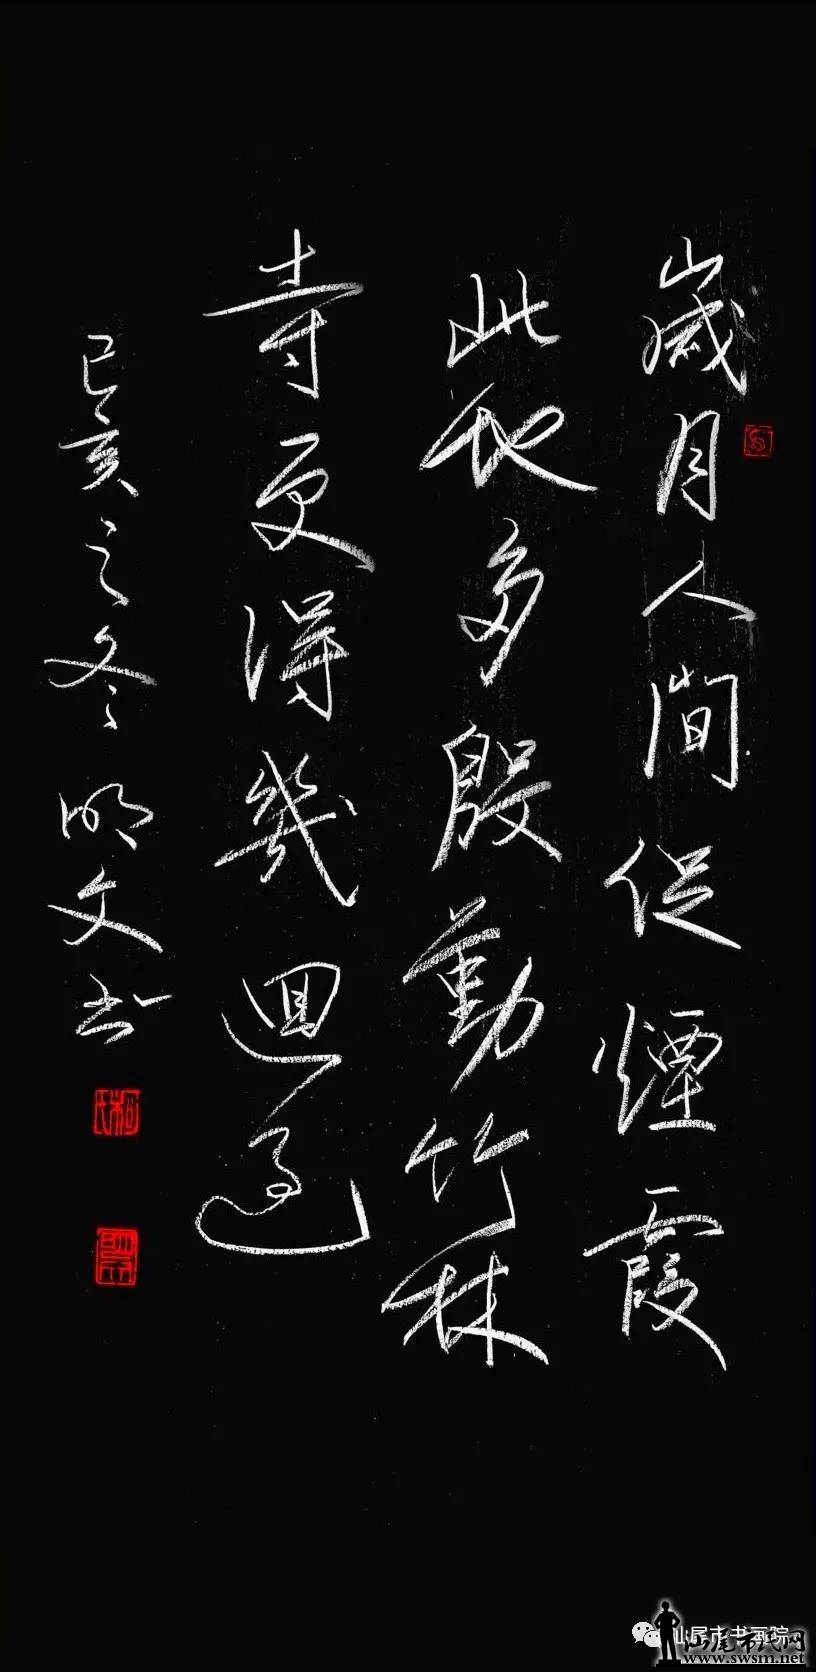 歲月人間促煙霞
此地多殷勤竹林
寺更得幾迴過
己亥之冬明文书
汕尾市书画院
汕尾市民网
www.swsm.net